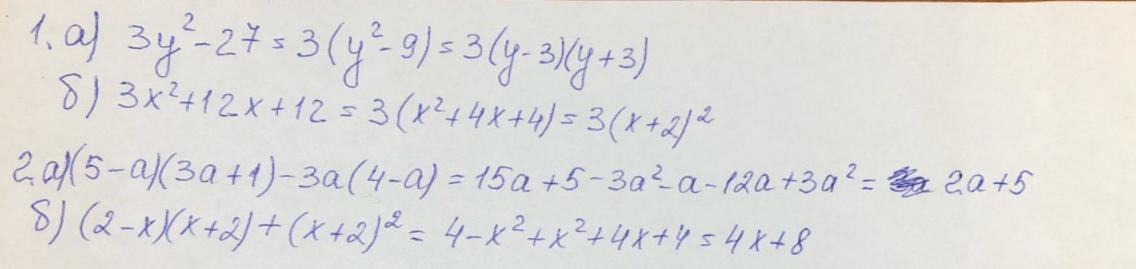 1. а) 3y²-27 = 3(y²-9) = 3(y-3)(y+3)
б) 3x²+12x+12 = 3(x²+4x+4) = 3(x+2)²
2. а) (5-a)(3a+1)-3a(4-a) = 15a+5-3a²-a-12a+3a² = 2a+5
б) (2-x)(x+2)+(x+2)² = 4-x²+x²+4x+4 = 4x+8